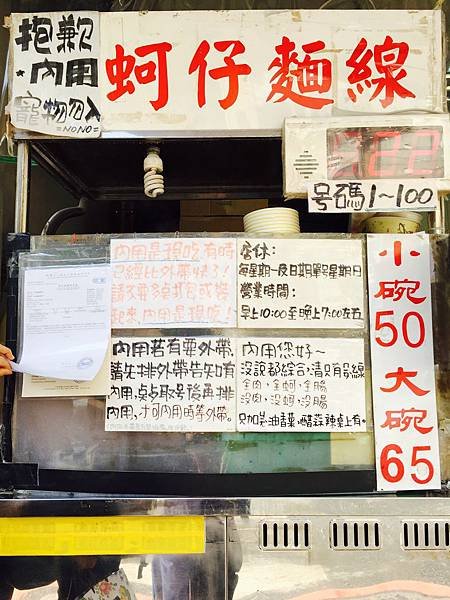 抱歉
*內用
寵物勿入
=NONO=
蚵仔麵線
22
号碼1~100
內用是現吃,有時
已經比外帶快了!
起來,內用是現吃!
店休:
每星期一及日期單號星期日
營業時間:
早上10:00至晚上7:00左右
小碗
50
大碗
65
內用若有要外帶,
請先排外帶告知有
內用,点点取号後再排
內用,才可內用時等外帶。
內用您好~
沒說都綜合,清只有麵線
全肉,全蚵,全腸
沒肉,沒蚵,沒腸
只加蒜油香菜,醋蒜辣桌上有。